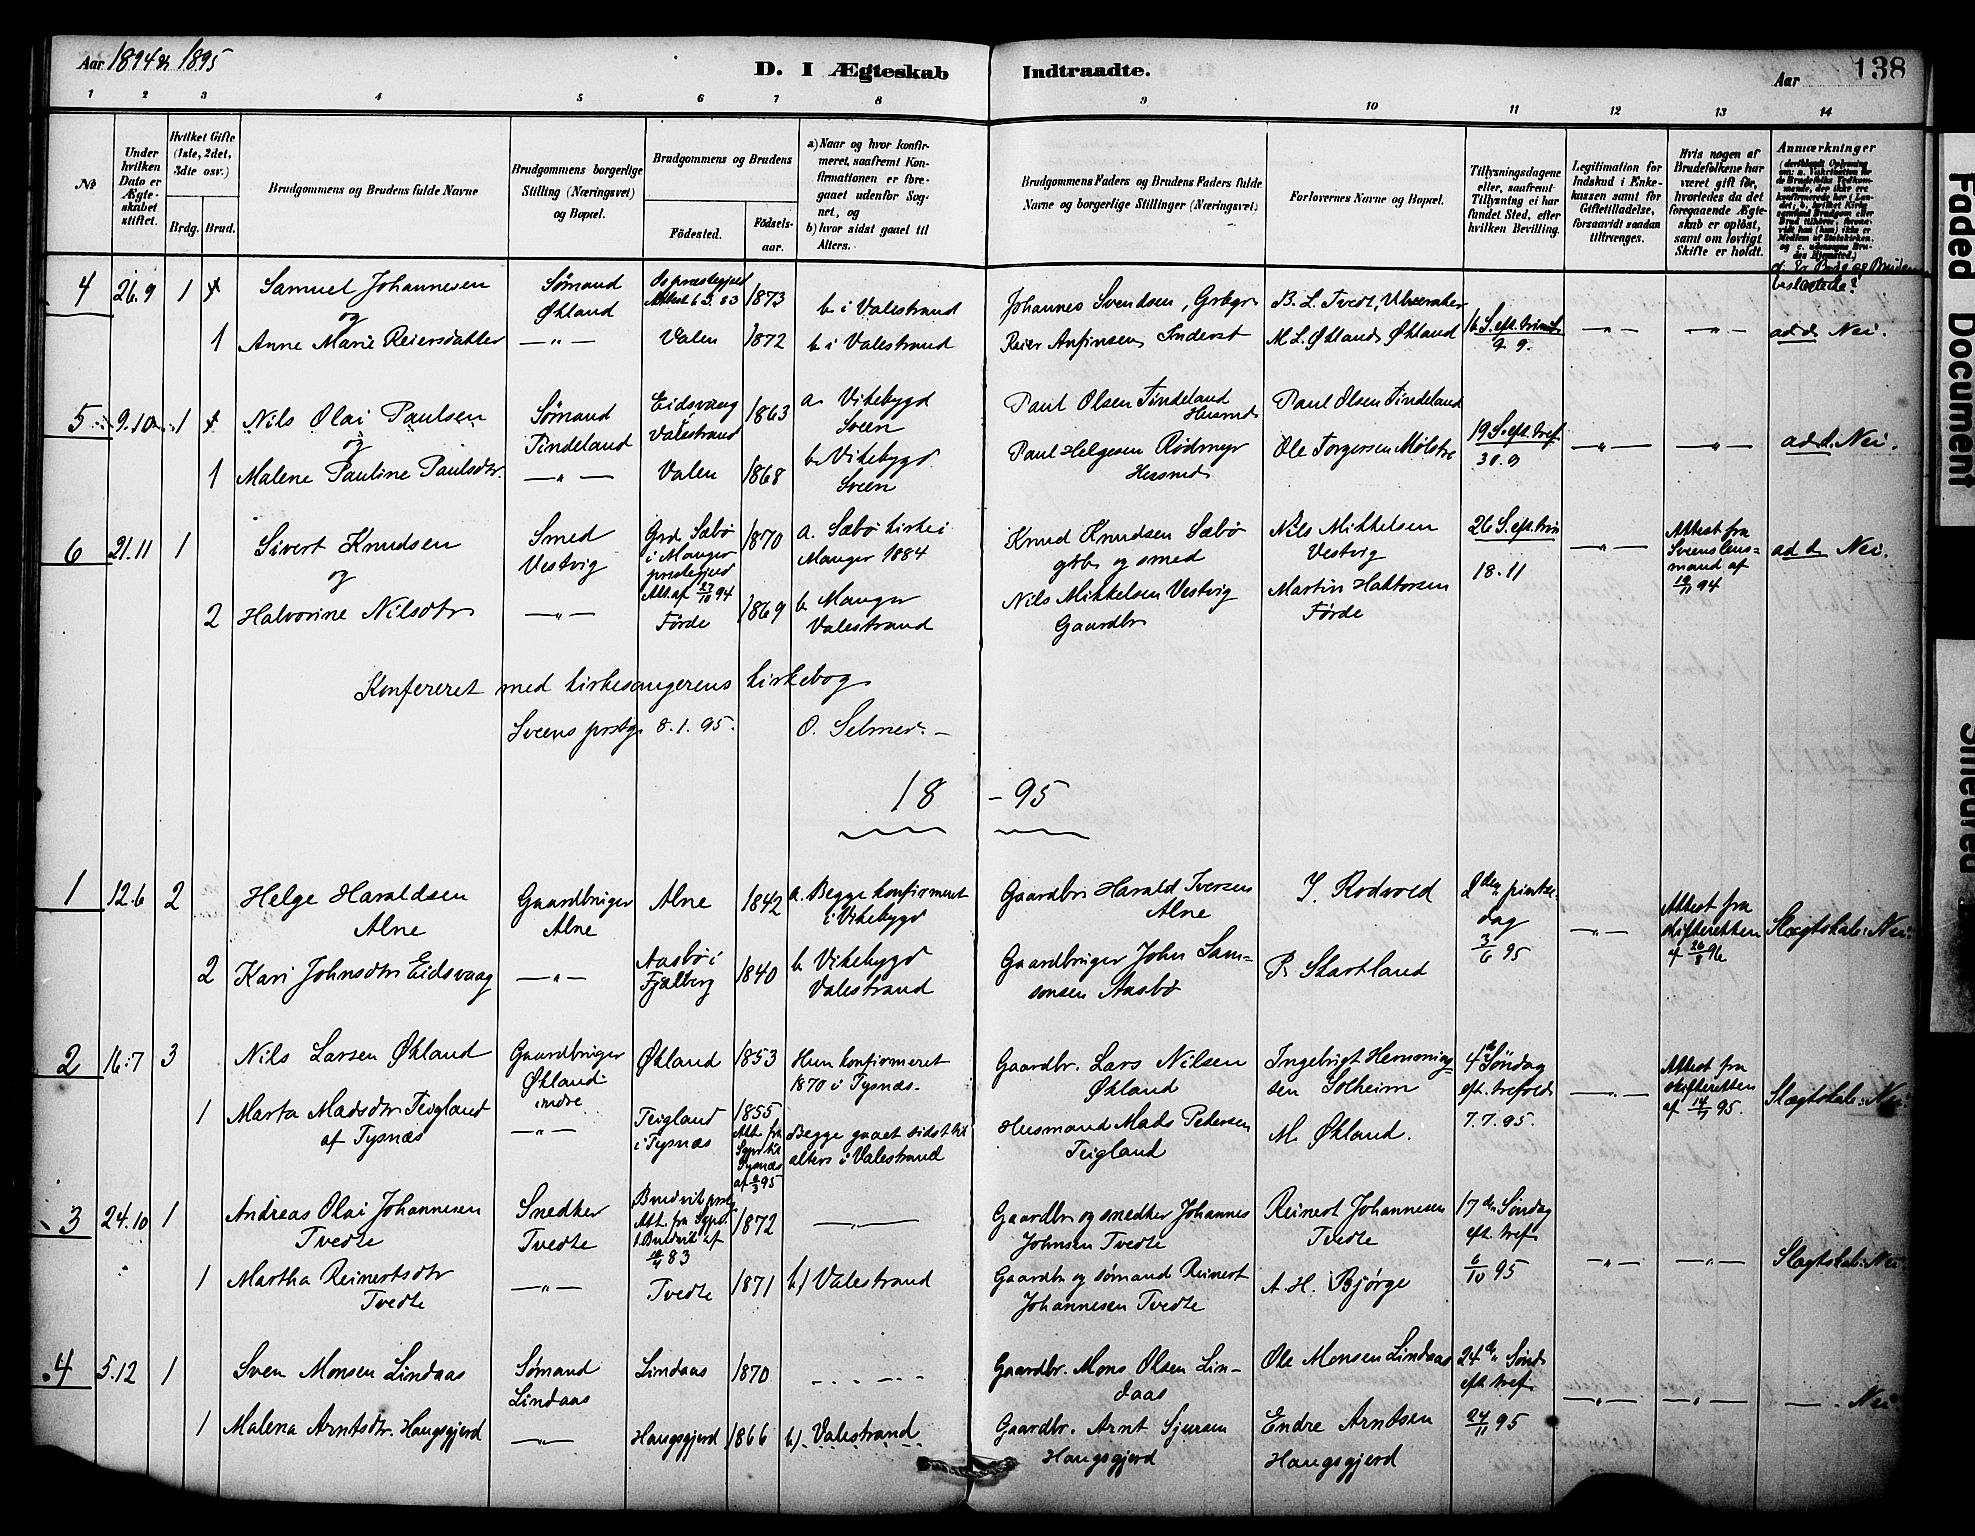 Aar 1894 & 1895
D. I Ægteskab Indtraadte.
Aar 138
1 2 3 4 5 6 7 8 9 10 11 12 13 14
No
Under hvilken Dato er Ægteskabet stiftet.
Hvilket Gifte (1ste, 2det, 3die osv.)
Brdg. Brud.
Brudgommens og Brudens fulde Navne
Brudgommens borgerlige Stilling (Næringsvei) og Bopæl.
Brudgommens og Brudens
Fødested.
Fødselsaar.
a) Naar og hvor konfirmeret, saafremt Konfirmationen er foregaaet udenfor Sognet, og
b) hvor sidst gaaet til Alters.
Brudgommens Faders og Brudens Faders fulde Navne og borgerlige Stillinger (Næringsvei)
Forlovernes Navne og Bopæl.
Tillysningsdagene eller, saafremt Tillysning ei har fundet Sted, efter hvilken Bevilling.
Legitimation for Indskud i Enkekassen samt for Giftetilladelse, forsaavidt saadan tiltrænges.
Hvis nogen af Brudefolkene har været gift før, hvorledes da det foregaaende Ægteskab er opløst, samt om lovligt Skifte er holdt.
Anmærkninger
4 26.9 1 Samuel Johannesen Sømand Os præstegjeld 1873 b i Valestrand Johannes Svendsen, Grbgr B. L. Tvedt,
og Økland
1 Anne Marie Reiersdatter —„— Valen 1872 b i Valestrand Reier Anfinsen Inderst M. L. Økland, Økland 16 S. eft. trinit 9.9. —„— —„— ad d. Nei.
5 9.10 1 Nils Olai Paulsen Sømand Eidsvaag 1863 a. Vikebygd Paul Olsen Tindeland Paul Olsen Tindeland
og Tindeland Valestrand Sveen Husmd 19 S. eft. tref. —„— —„— ad d. Nei.
1 Malene Pauline Paulsdtr. —„— Valen 1868 b Vikebygd Paul Helgesen Rødmyr Ole Torgersen Mølstre 30.9
Sveen Husmd
6 21.11 1 Sivert Knudsen Smed Grd. Sæbø 1870 a. Sæbø kirke i Knud Knudsen Sæbø Nils Mikkelsen 26 S. eft. trin Attest fra
og Vestvig i Manger Manger 1884 gbr og smed Vestvig —„— Sveens lens= ad d. Nei.
præstegjeld 18.11 mand af
Att. af 27/10 94 19/11 94
2 Halvorine Nilsdtr —„— Førde 1869 b Manger Nils Mikkelsen Vestvig Martin Haktorsen
Valestrand Gaardbr Førde
Konfereret med kirkesangerens kirkebog
Sveens prstgj. 8.1.95. O. Selmer.
18 — 95
1 12.6 2 Helge Haraldsen Gaardbruger Alne 1842 a. Begge konfirmeret Gaardbr Harald Iversen I. Rodvold 2den pintse-
Alne Alne i Vikebygd Alne dag Attest fra skifteretten
2 Kari Johnsdtr Eidsvaag —„— Aasbø i 1840 b Vikebygd Gaardbruger John Sam= P. Skartland 3/6 95 —„— Slægtskab: Nei.
Fjælberg Valestrand sonsen Aasbø
2 16.7 3 Nils Larsen Økland Gaardbruger Økland 1853 Hun konfirmeret Gaardbr. Lars Nilsen Ingebrigt Hemming= 4de Søndag Attest fra
Økland indre 1870 i Tysnæs. Økland sen Solheim eft. trefold. —„— skifteretten Slægtskab: Nei.
1 Marta Madsdtr Teigland —„— Teigland 1855 Begge gaaet sidst til Husmand Mads Pedersen M. Økland. 7.7.95. af 14/7 95.
af Tysnæs i Tysnæs Att. fra Sgpr til Tysnæs alters i Valestrand Teigland
3 24.10 1 Andreas Olai Johannesen Snedker 1872 —„— Gaardbr og snedker Johannes Reinert Johannesen 17de Søndag
Tvedte Tvedte Johnsen Tvedte Tvedte eft. tref.
1 Martha Reinertsdtr —„— Tvedte 1871 b) Valestrand Gaardbr og sømand Reinert A. H. Bjørge 6/10 95 —„— —„— Slægtskab: Nei.
Tvedte Johannesen Tvedte
4 5.12 1 Sven Monsen Lindaas Sømand Lindaas 1870 Gaardbr. Mons Olsen Lin- Ole Monsen Lindaas 24de Sønd
Lindaas daas eft. tref.
1 Malena Arntsdtr. Haugsgjerd —„— Haugsgjerd 1866 b). Valestrand Gaardbr. Arnt Sjursen Endre Arntsen 24/11 95 —„— —„— — Nei
Haugsgjerd Haugsgjerd
Faded Document
Smeared